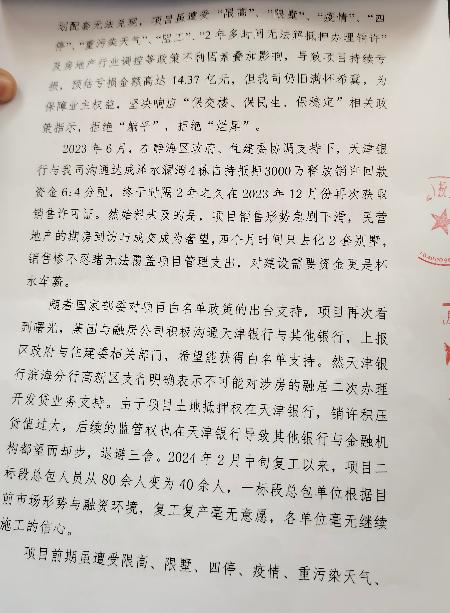 划配套无法兑现，项目虽遭受“限高”、“限墅”、“疫情”、“四
停”、“重污染天气”、“监工”、“2 年多时间无法解抵押办理销许”
及房地产行业调控等政策不利因素叠加影响，导致项目持续亏
损，预估亏损金额高达 14.37 亿元，但我司仍旧满怀希冀，为
保障业主权益，坚决响应“保交楼、保民生、保稳定”相关政
策指示，拒绝“躺平”，拒绝“烂尾”。
2023 年 6 月，在静海区政府、住建委协调支持下，天津银
行与我司沟通达成 4 栋 抵押 3000 万释放销 回款
资金 6:4 分配，终于时隔 2 年之久在 2023 年 12 月份再次获取
销售许可证。然始料未及的是，项目销售形势急剧下滑，民营
地产的期房到访与成交成为奢望，两个月时间只去化 2 套别墅，
销售惨不忍睹无法覆盖项目管理支出，对建设需要资金更是杯
水车薪。
随着国家部委对项目白名单政策的出台支持，项目再次看
到曙光，集团与融房公司积极沟通天津银行与其他银行，上报
区政府与住建委相关部门，希望能获得白名单支持。然天津银
行滨海分行高新区支行明确表示不可能对涉房的融居二次办理
开发贷业务支持。由于项目土地抵押权在天津银行，销许积压
货值过大，后续的监管权也在天津银行导致其他银行与金融机
构都望而却步，退避三舍。2024 年 2 月中旬复工以来，项目二
标段总包人员从 80 余人变为 40 余人，一标段总包单位根据目
前市场形势与融资环境，复工复产毫无意愿，各单位毫无继续
施工的信心。
项目前期虽遭受限高、限墅、四停、疫情、重污染天气、